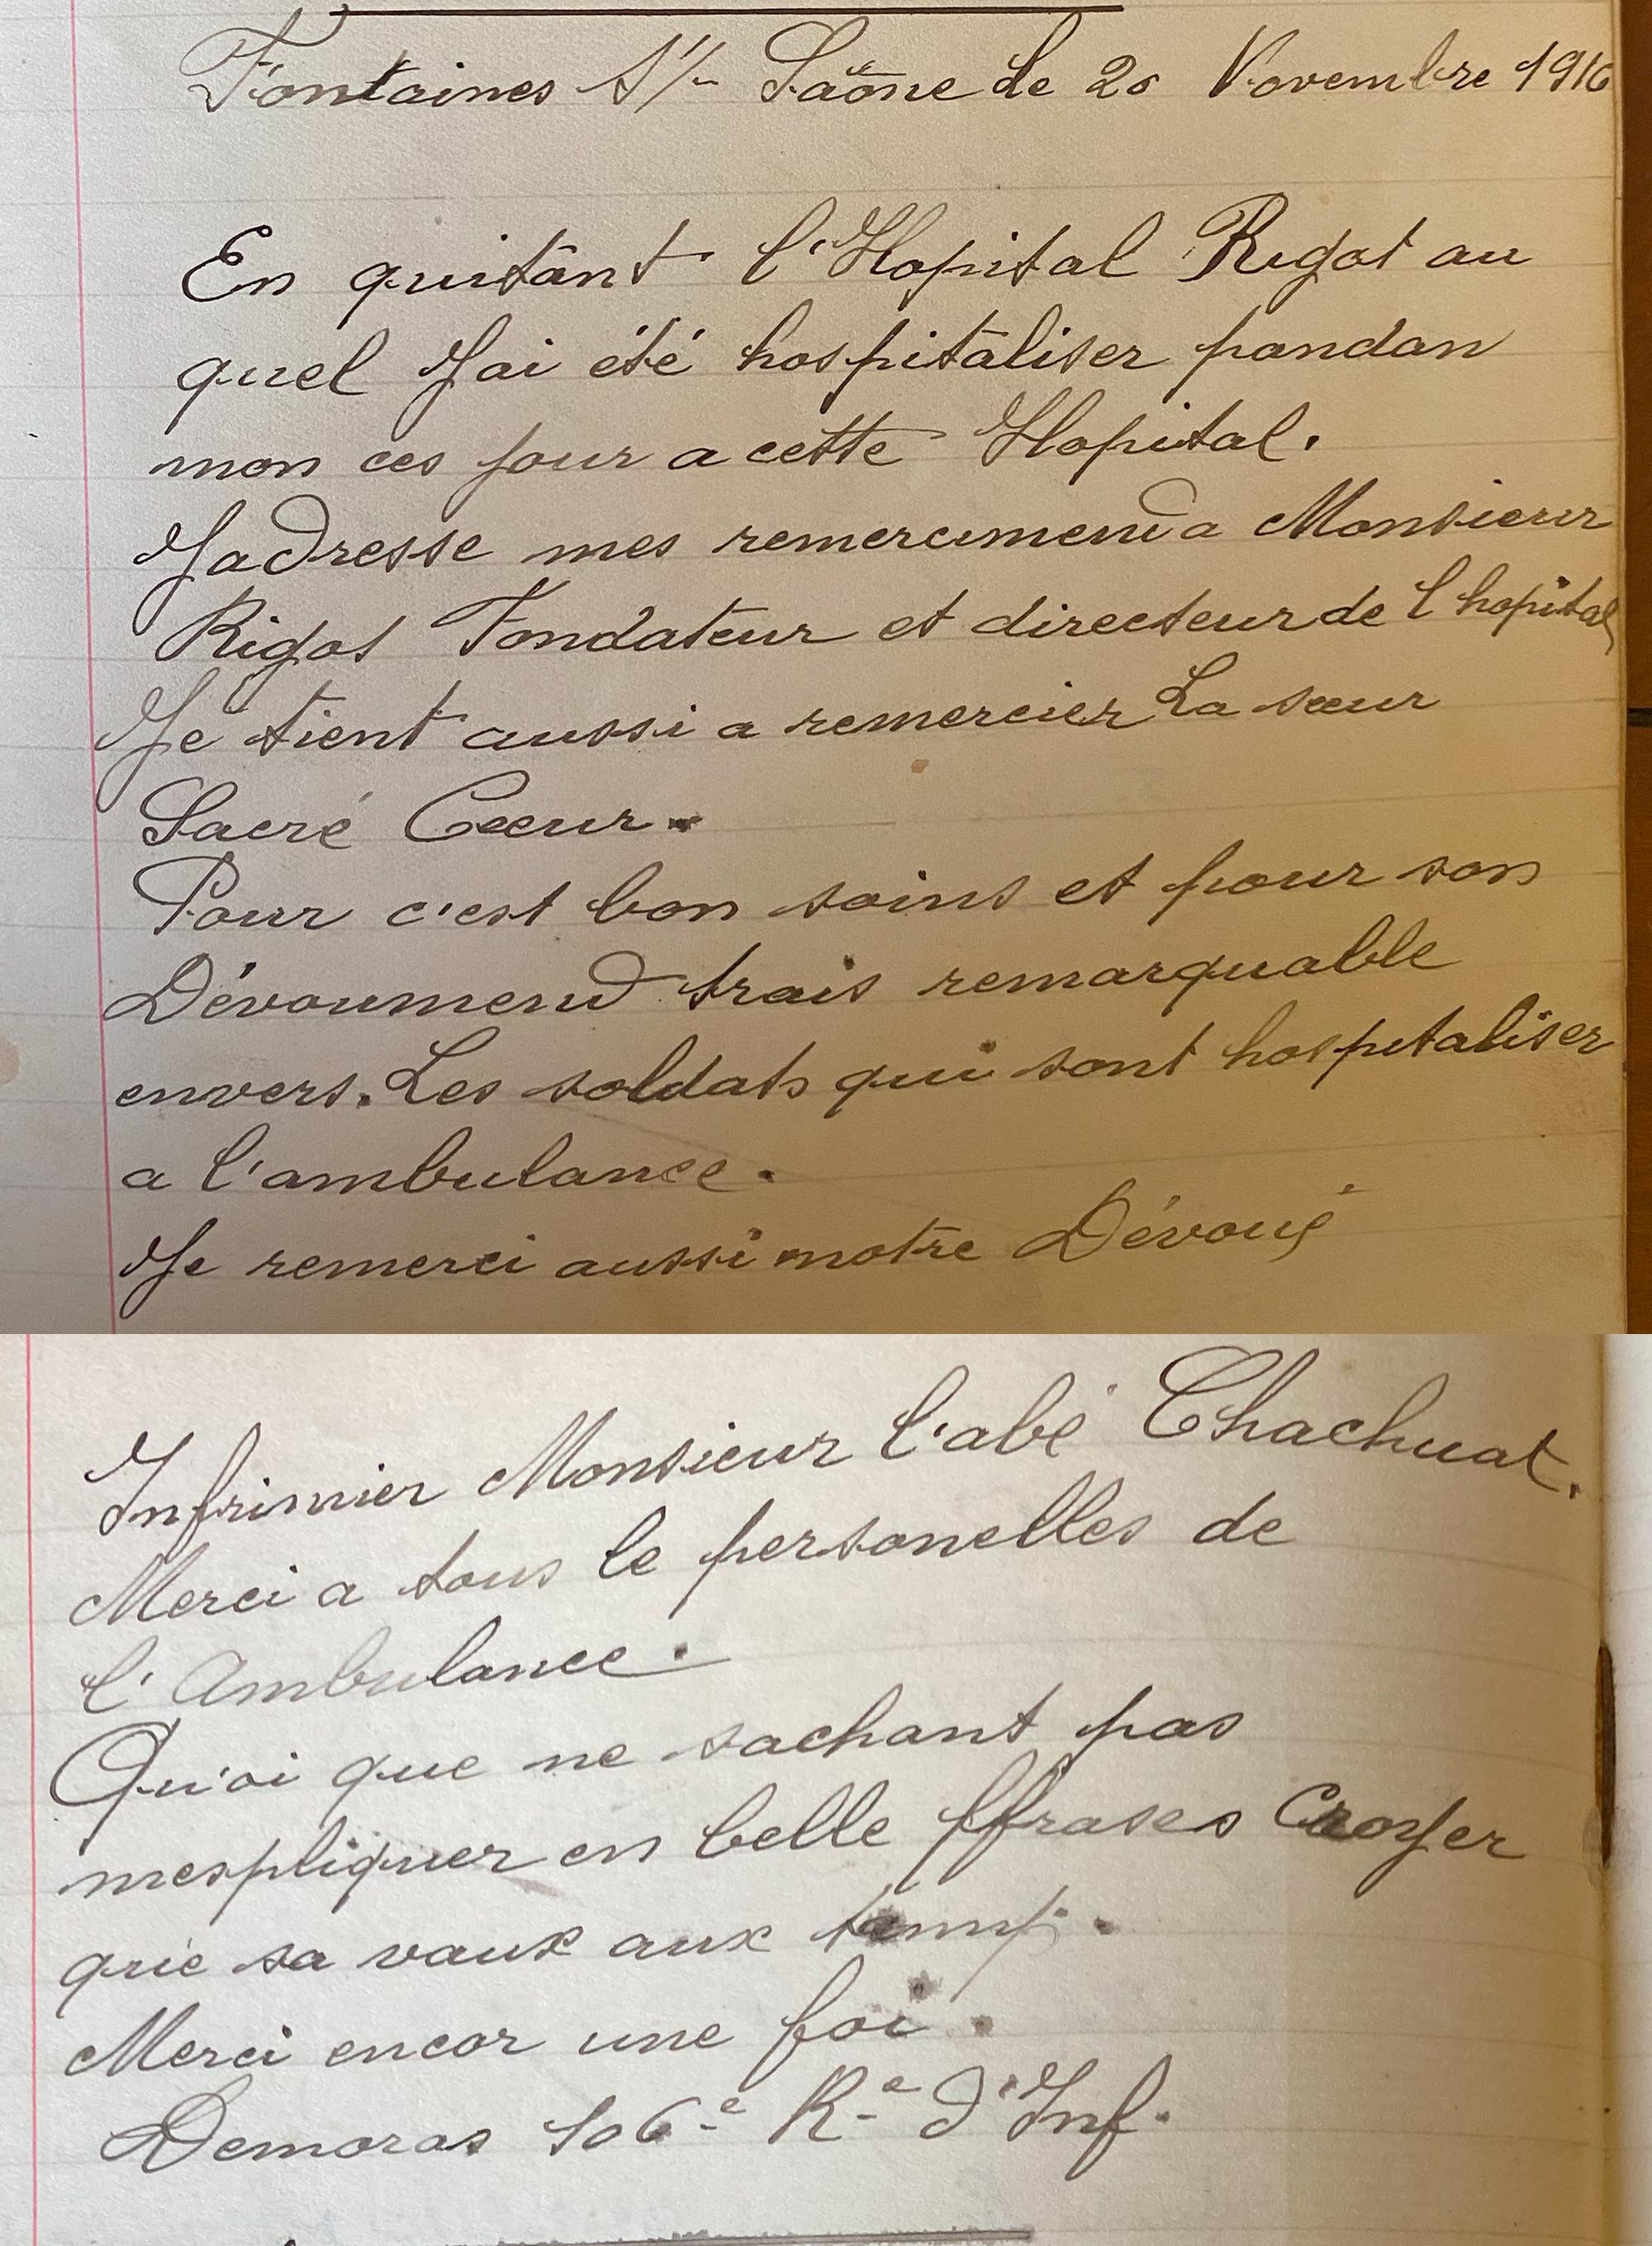 Fontaines S/- Saône le 20 Novembre 1916
En quitant l'Hopital Rigot au
quel Jai été hospitaliser pandan
mon ces jour a cette Hopital.
Jadresse mes remercimend a Monsieur
Rigot Fondateur et directeur de l hopital
Je tient aussi a remercier La sœur
Sacré Cœur.
Pour c'est bon soins et pour son
Dévoumend trais remarquable
envers. Les soldats qui sont hospitaliser
a l'ambulance.
Je remerci aussi notre Dévoué
Infrimier Monsieur l'abé Chachuat.
Merci a tous le personelles de
l'Ambulance.
Qu'oi que ne sachant pas
mespliquer en belle ffrases Croyer
que sa vaux aux temp.
Merci encor une foi.
Demoras 106e Re d'Inf.